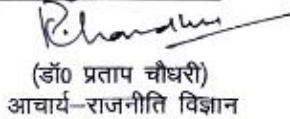 (डॉ0 प्रताप चौधरी)
आचार्य–राजनीति विज्ञान